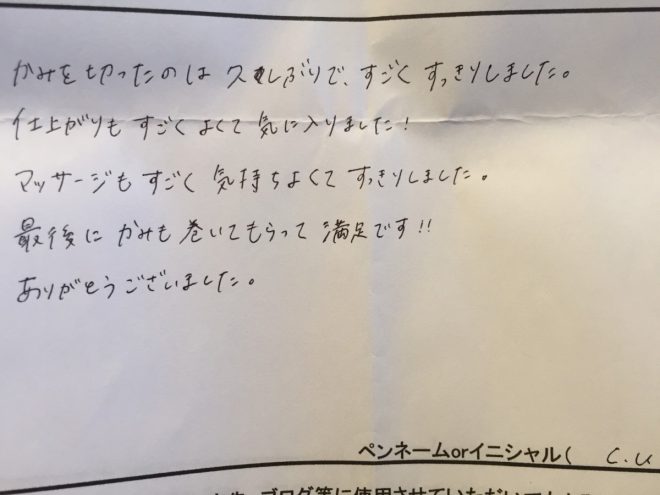 かみを切ったのは久しぶりで、すごくすっきりしました。
仕上がりもすごくよくて気に入りました!
マッサージもすごく気持ちよくてすっきりしました。
最後にかみも巻いてもらって満足です!!
ありがとうございました。
ペンネームorイニシャル( C.U
ブログ等に使用させていただいて